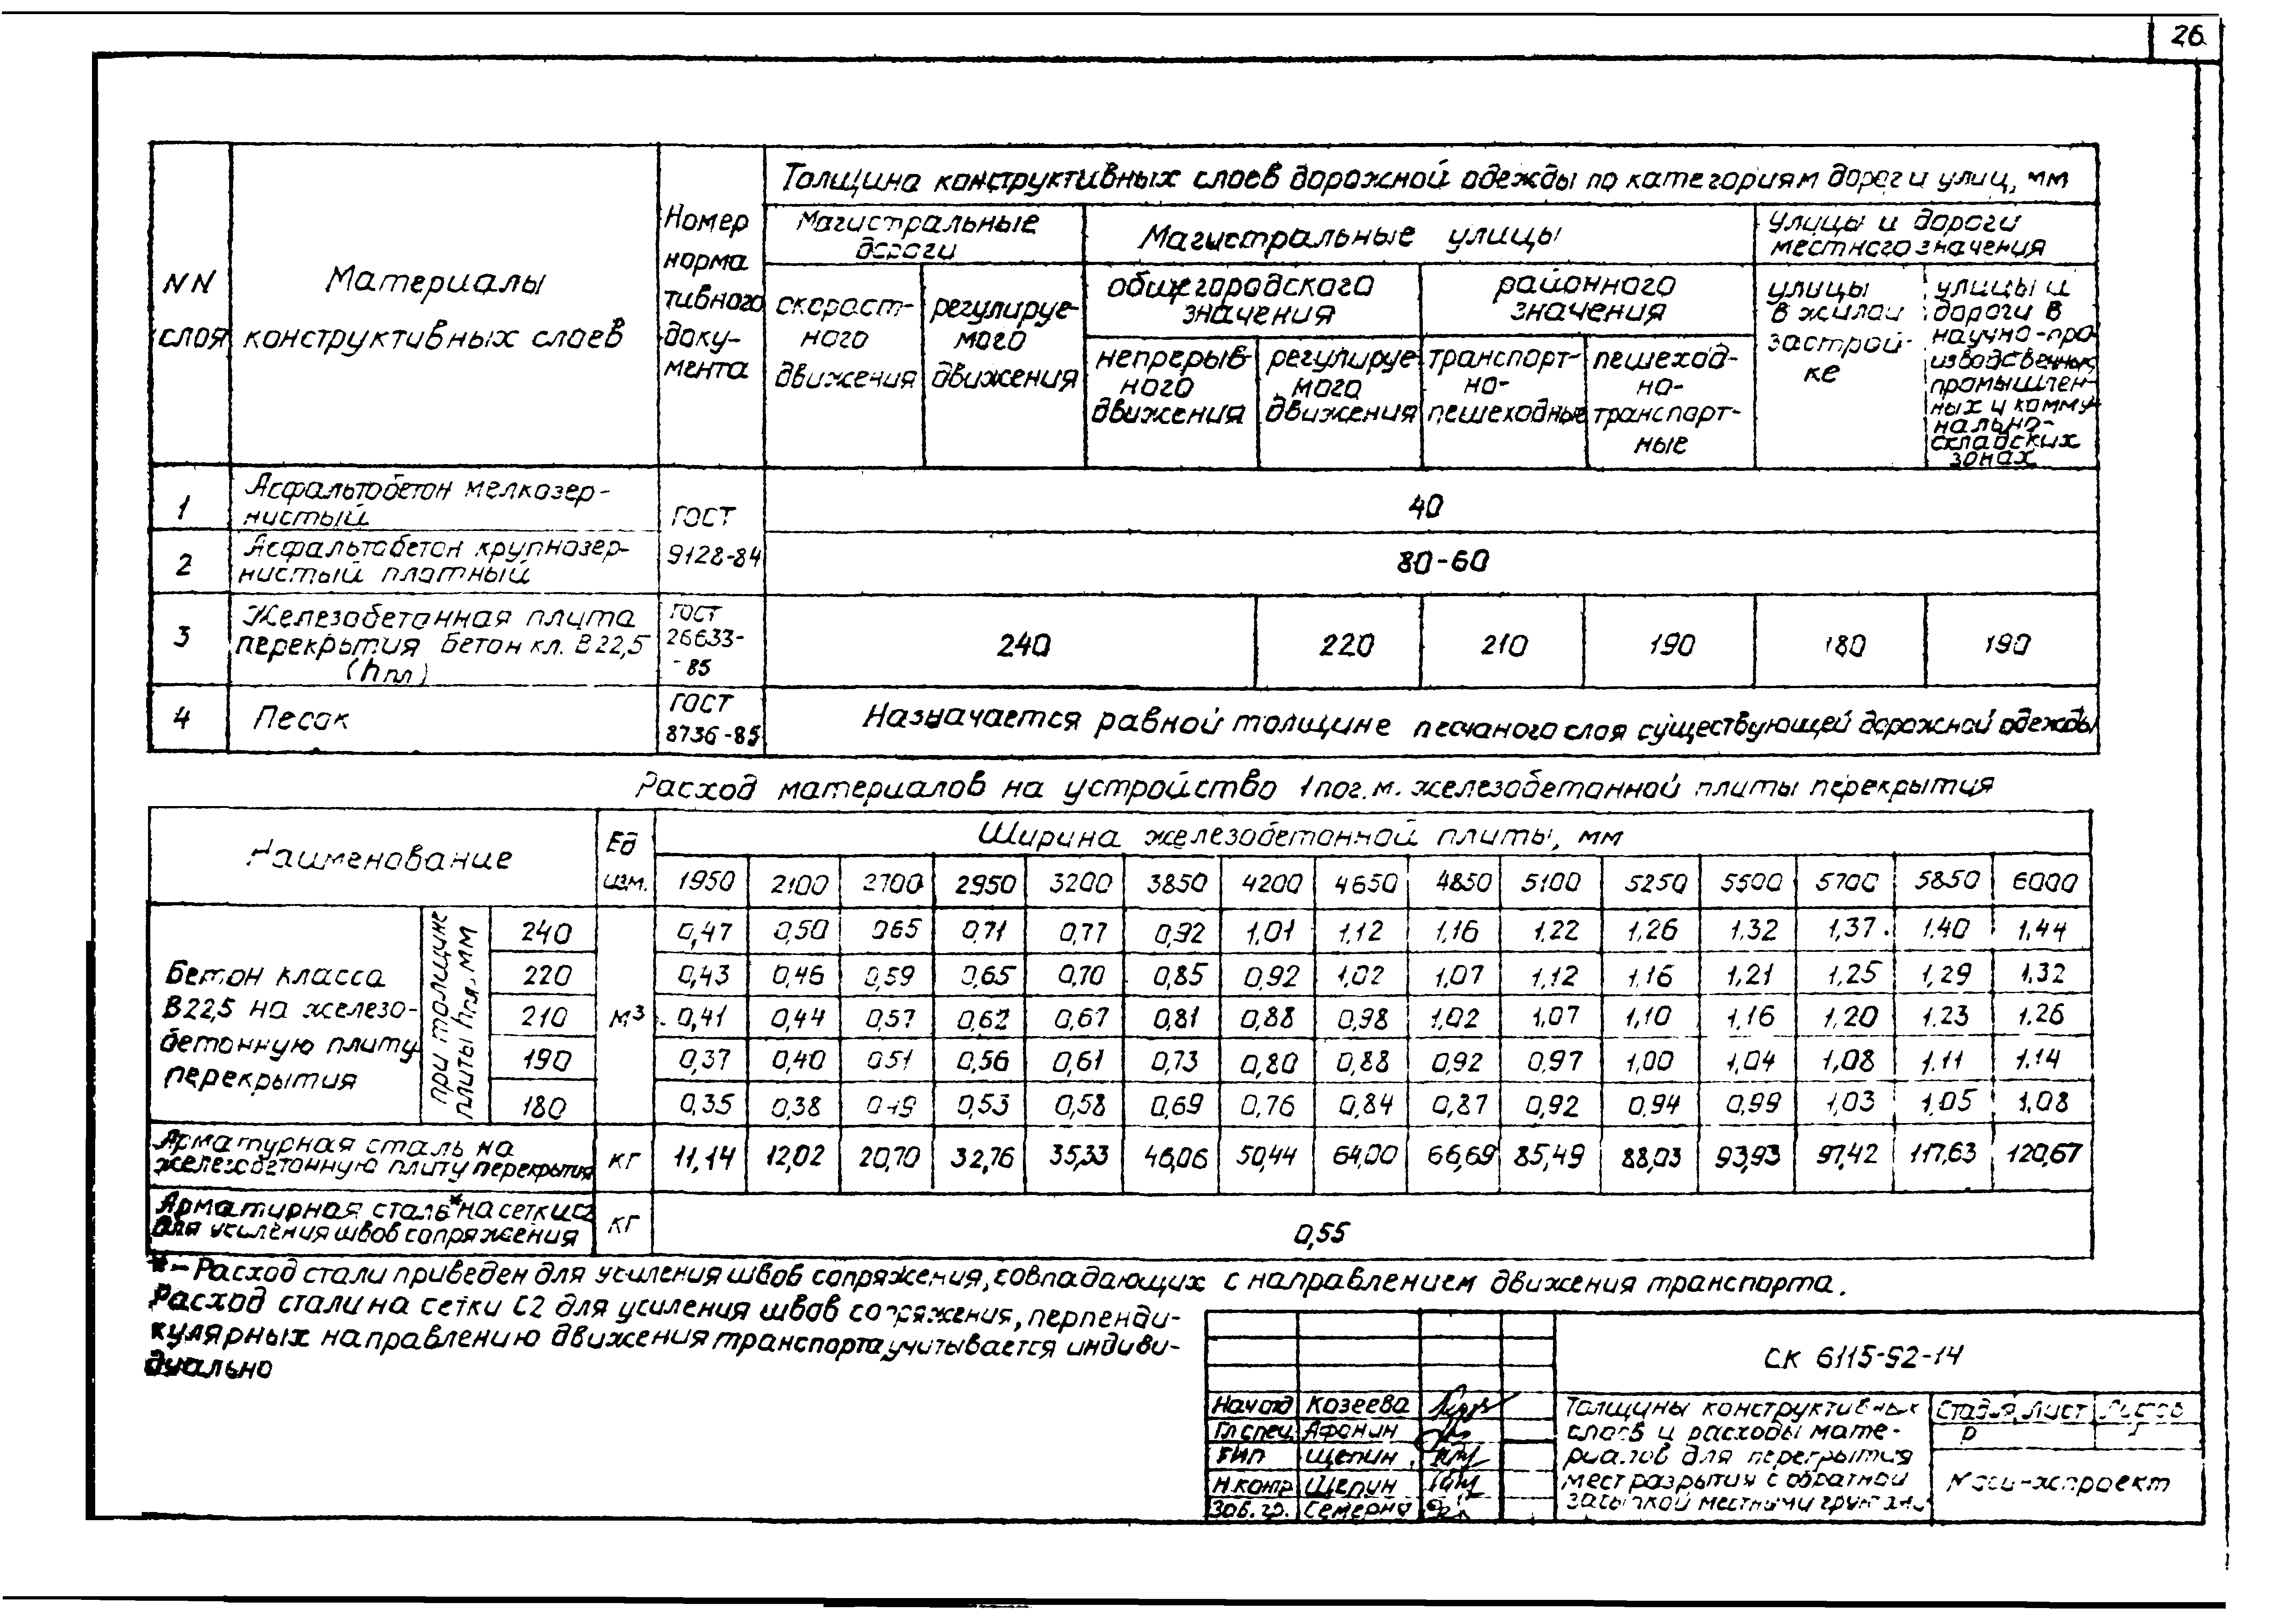 26
NN слоя
Материалы конструктивных слоев
Номер нормативного документа
Толщина конструктивных слоев дорожной одежды по категориям дорог и улиц, мм
Магистральные дороги
Магистральные улицы
Улицы и дороги местного значения
скоростного движения
регулируемого движения
общегородского значения
районного значения
улицы в жилой застройке
улицы и дороги в научно-производственных, промышленных и коммунально-складских зонах
непрерывного движения
регулируемого движения
транспортно-пешеходные
пешеходно-транспортные
1 Асфальтобетон мелкозернистый ГОСТ 9128-84 40
2 Асфальтобетон крупнозернистый плотный 80-60
3 Железобетонная плита перекрытия бетон кл. В22,5 (hпл) ГОСТ 26633-85 240 220 210 190 180 190
4 Песок ГОСТ 8736-85 Назначается равной толщине песчаного слоя существующей дорожной одежды
Расход материалов на устройство 1 пог. м. железобетонной плиты перекрытия
Наименование
Ед изм.
Ширина железобетонной плиты, мм
1950 2100 2700 2950 3200 3850 4200 4650 4850 5100 5250 5500 5700 5850 6000
Бетон класса В22,5 на железобетонную плиту перекрытия
при толщине плиты hпл, мм
м³
240 0,47 0,50 0,65 0,71 0,77 0,92 1,01 1,12 1,16 1,22 1,26 1,32 1,37 1.40 1,44
220 0,43 0,46 0,59 0,65 0,70 0,85 0,92 1,02 1,07 1,12 1,16 1,21 1,25 1,29 1,32
210 0,41 0,44 0,57 0,62 0,67 0,81 0,88 0,98 1,02 1,07 1,10 1,16 1,20 1.23 1.26
190 0,37 0,40 0,51 0,56 0,61 0,73 0,80 0,88 0,92 0,97 1,00 1,04 1,08 1.11 1.14
180 0,35 0,38 0,49 0,53 0,58 0,69 0,76 0,84 0,87 0,92 0,94 0,99 1,03 1.05 1,08
Арматурная сталь на железобетонную плиту перекрытия кг 11,14 12,02 20,70 32,76 35,33 46,06 50,44 64,00 66,69 85,49 88,03 93,93 97,42 117,63 120,67
Арматурная сталь* на сетки С2 для усиления швов сопряжения кг 0,55
* – Расход стали приведен для усиления швов сопряжения, совпадающих с направлением движения транспорта.
Расход стали на сетки С2 для усиления швов сопряжения, перпенди-
кулярных направлению движения транспорта учитывается индиви-
дуально
СК 6115-92-14
Нач отд Козеева
Гл спец Афонин
ГИП Щепин
Н.контр Щепин
Зав. гр.
Толщины конструктивных
слоев и расходы мате-
риалов для перекрытия
мест разрытия с обратной
засыпкой местными грунтами
Стадия Лист Листов
Р
Мосинжпроект